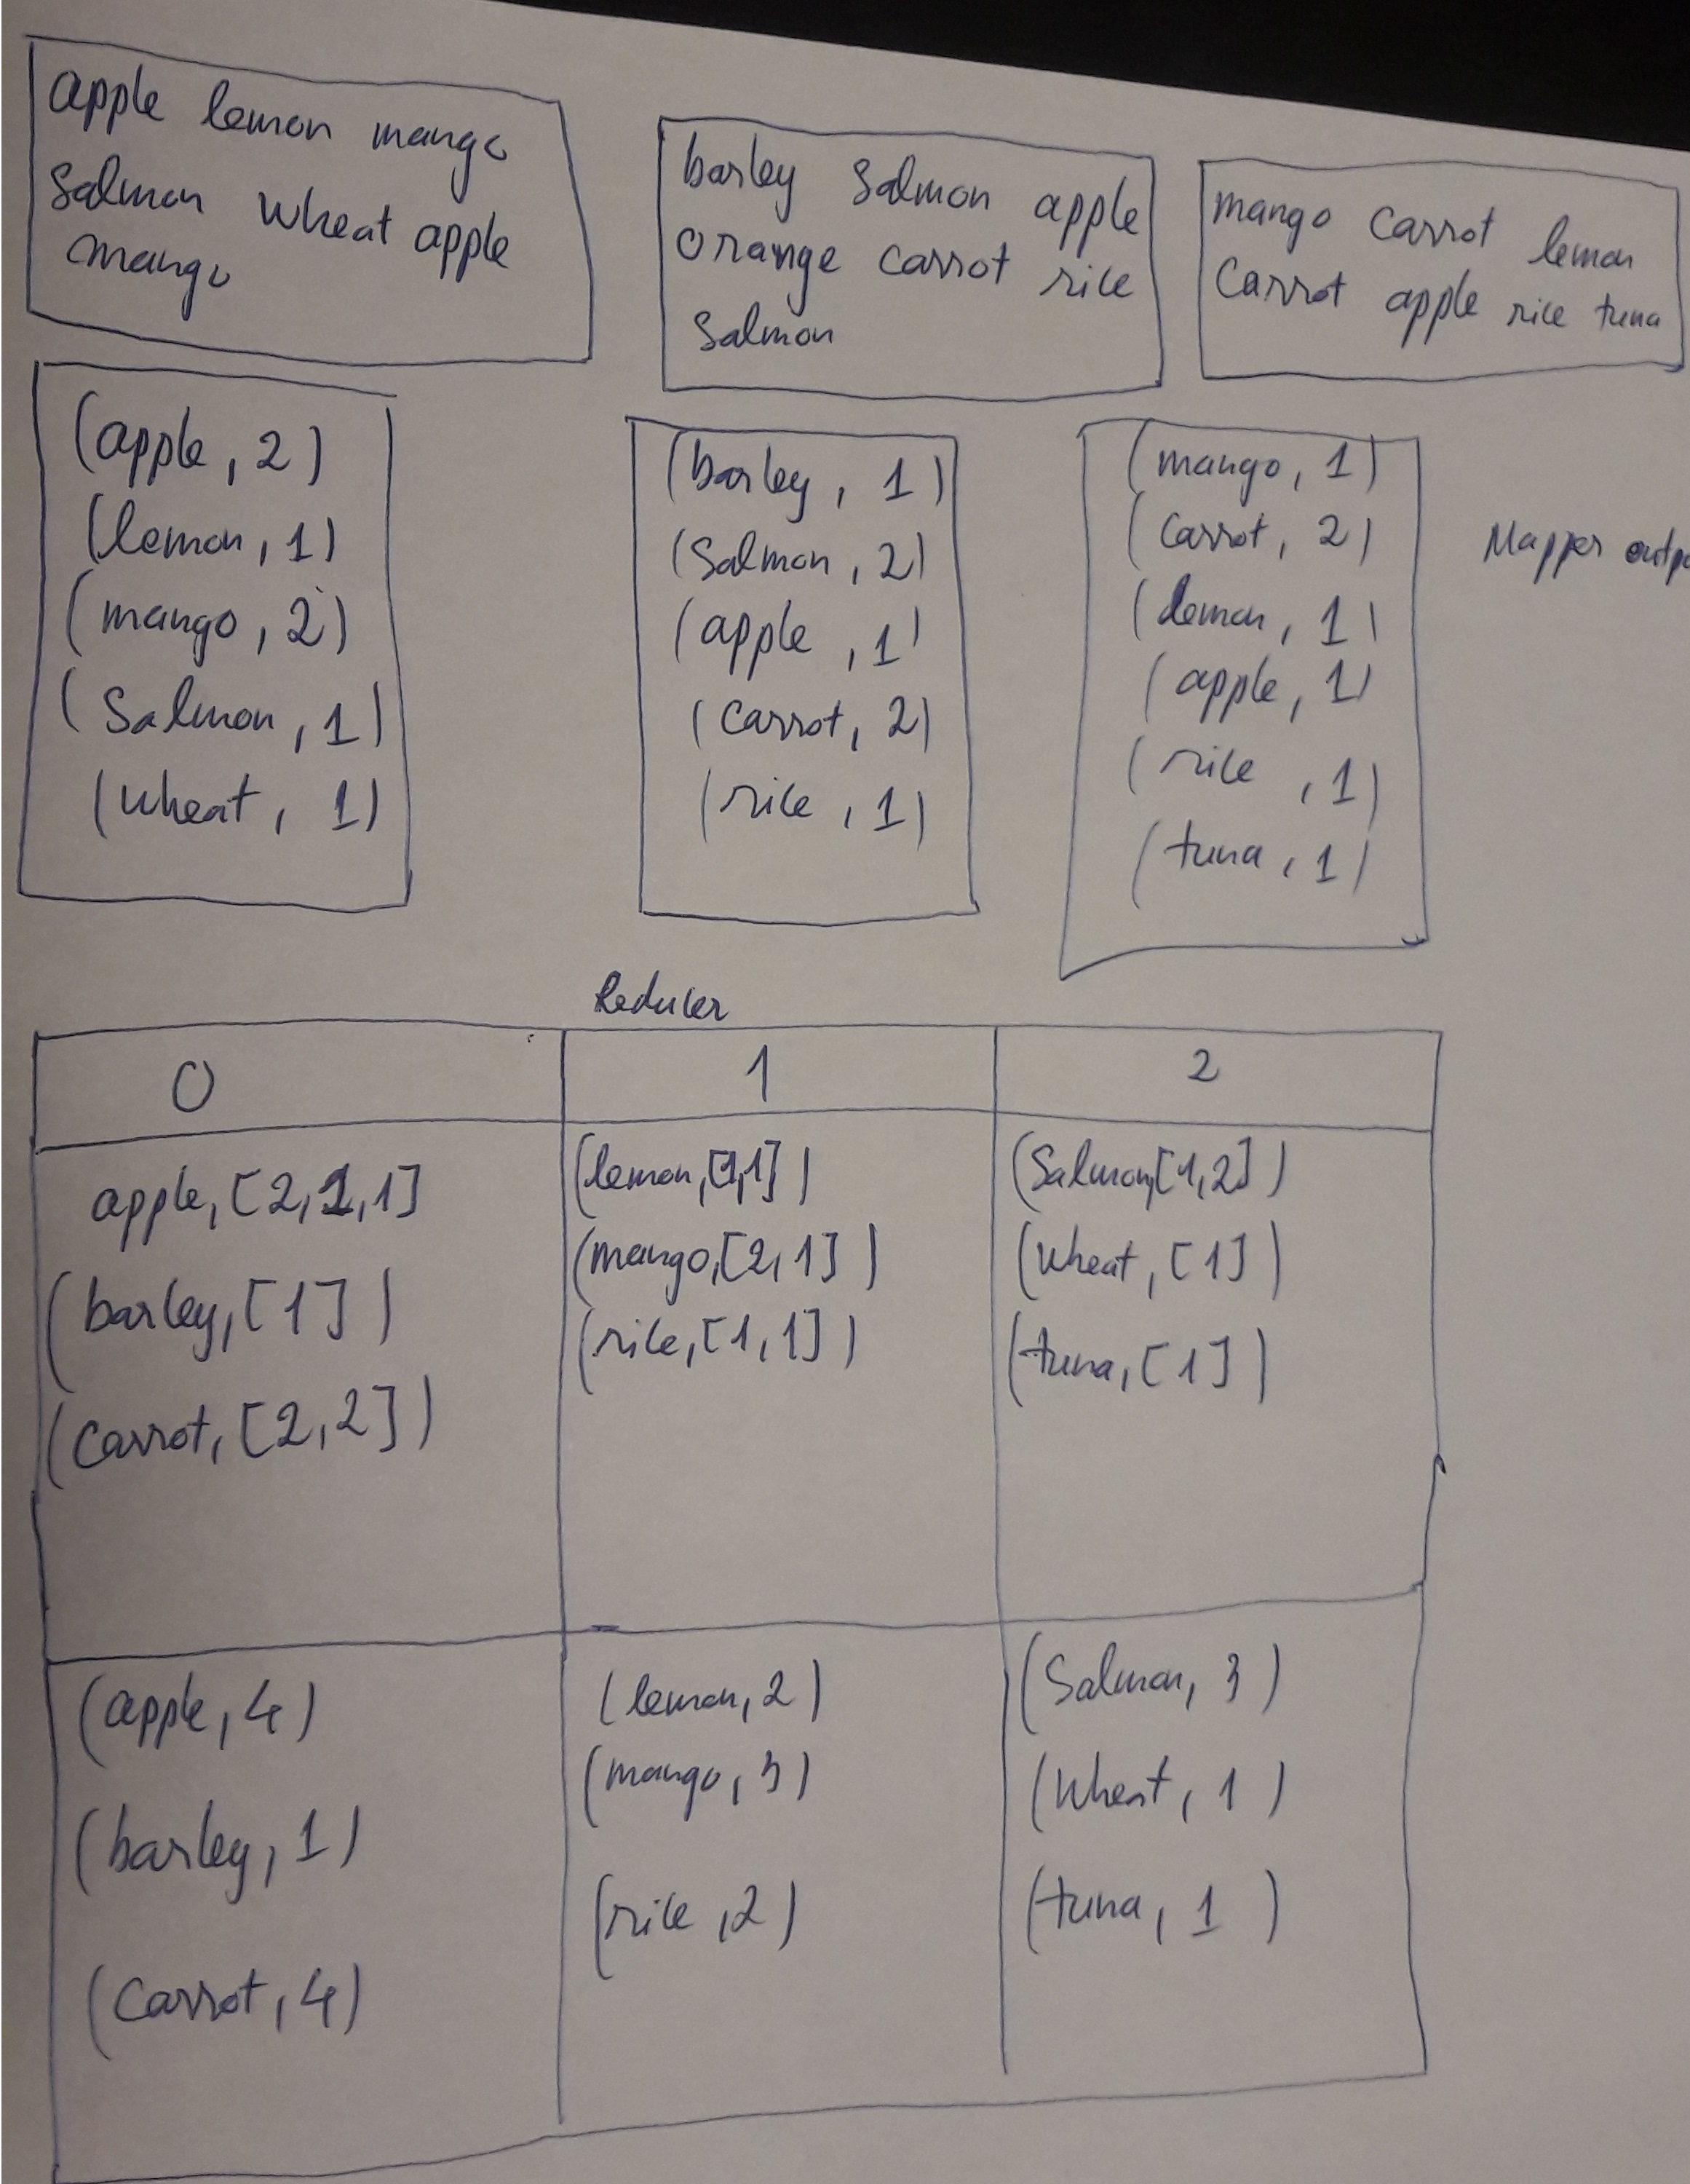 apple lemon mango
Salmon wheat apple
mango
barley Salmon apple
Orange carrot rice
Salmon
mango carrot lemon
Carrot apple rice tuna
(apple, 2)
(lemon, 1)
(mango, 2)
(Salmon, 1)
(wheat, 1)
(barley, 1)
(Salmon, 2)
(apple, 1)
(carrot, 2)
(rice, 1)
(mango, 1)
(carrot, 2)
(lemon, 1)
(apple, 1)
(rice, 1)
(tuna, 1)
Mapper outp
Reducer
0 1 2
apple, [2,1,1]
(barley, [1])
(carrot, [2,2])
(lemon, [1,1])
(mango, [2,1])
(rice, [1,1])
(Salmon, [1,2])
(wheat, [1])
(tuna, [1])
(apple, 4)
(barley, 1)
(carrot, 4)
(lemon, 2)
(mango, 3)
(rice, 2)
(Salmon, 3)
(wheat, 1)
(tuna, 1)